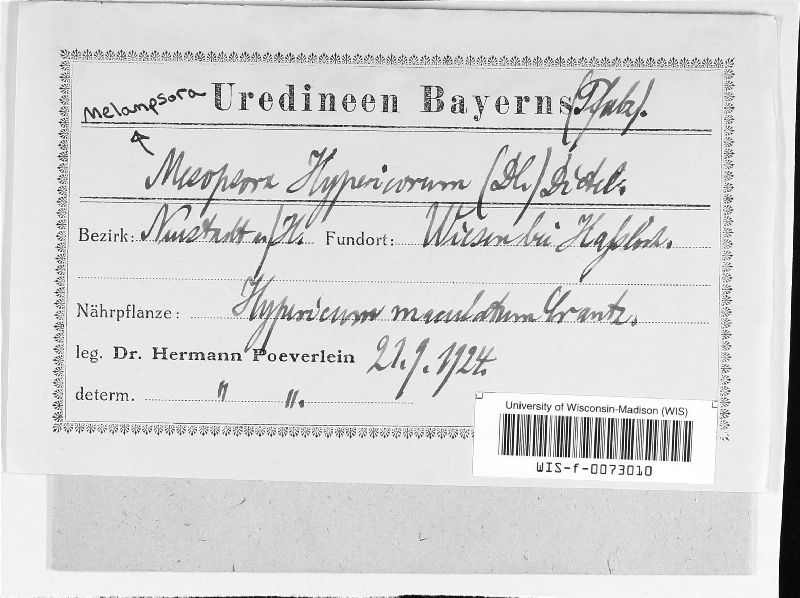 Melampsora Uredineen Bayerns (Pfalz).
Mesopsora Hypericorum (DC.) Dietel.
Bezirk: Neustadt a/H. Fundort: Wiesen bei Haßloch.
Nährpflanze: Hypericum maculatum Crantz.
leg. Dr. Hermann Poeverlein 21.9.1924.
determ. " ".
University of Wisconsin-Madison (WIS)
WIS-f-0073010